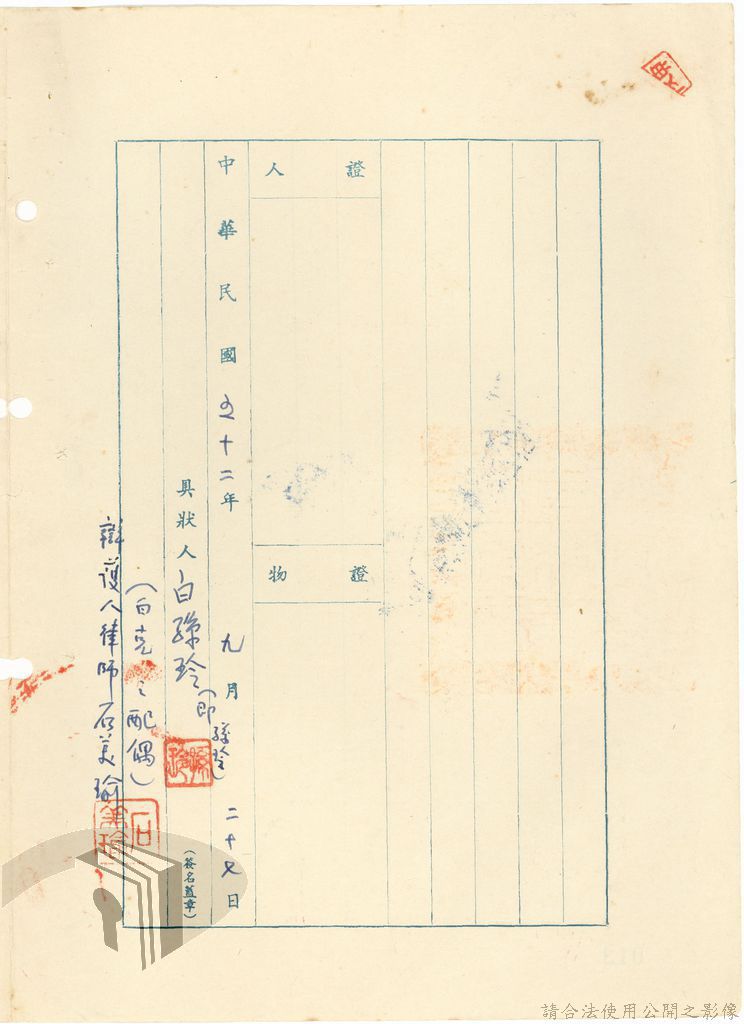 證人
證物
中華民國五十二年九月二十七日
具狀人白孫玲(即孫玲)
(簽名蓋章)
(白克之配偶)
辯護人律師石美瑜
石美瑜
請合法使用公開之影像